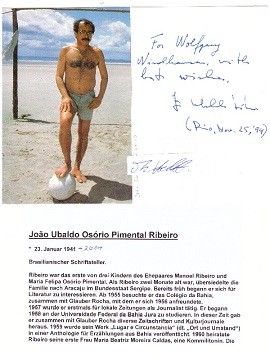 For Wolfgang
with
best wishes,
(Rio, Nov. 25, '94)
João Ubaldo Osório Pimental Ribeiro
* 23. Januar 1941 - 2014
Brasilianischer Schriftsteller.
Ribeiro war das erste von drei Kindern des Ehepaares Manoel Ribeiro und
Maria Felipa Osório Pimental. Als Ribeiro zwei Monate alt war, übersiedelte die
Familie nach Aracaju im Bundesstaat Sergipe. Bereits früh begann er sich für
Literatur zu interessieren. Ab 1955 besuchte er das Colégio da Bahia,
zusammen mit Glauber Rocha, mit dem er sich 1956 anfreundete.
1957 wurde er erstmals für lokale Zeitungen als Journalist tätig. Er begann
1958 an der Universidade Federal da Bahia Jura zu studieren. In dieser Zeit gab
er zusammen mit Glauber Rocha diverse Zeitschriften und Kulturjournale
heraus. 1959 wurde sein Werk „Lugar e Circunstancia" (dt. „Ort und Umstand")
in einer Anthologie für Erzählungen aus Bahia veröffentlicht. 1960 heiratete
Ribeiro seine erste Frau Maria Beatriz Moreira Caldas, eine Kommilitonin. Die